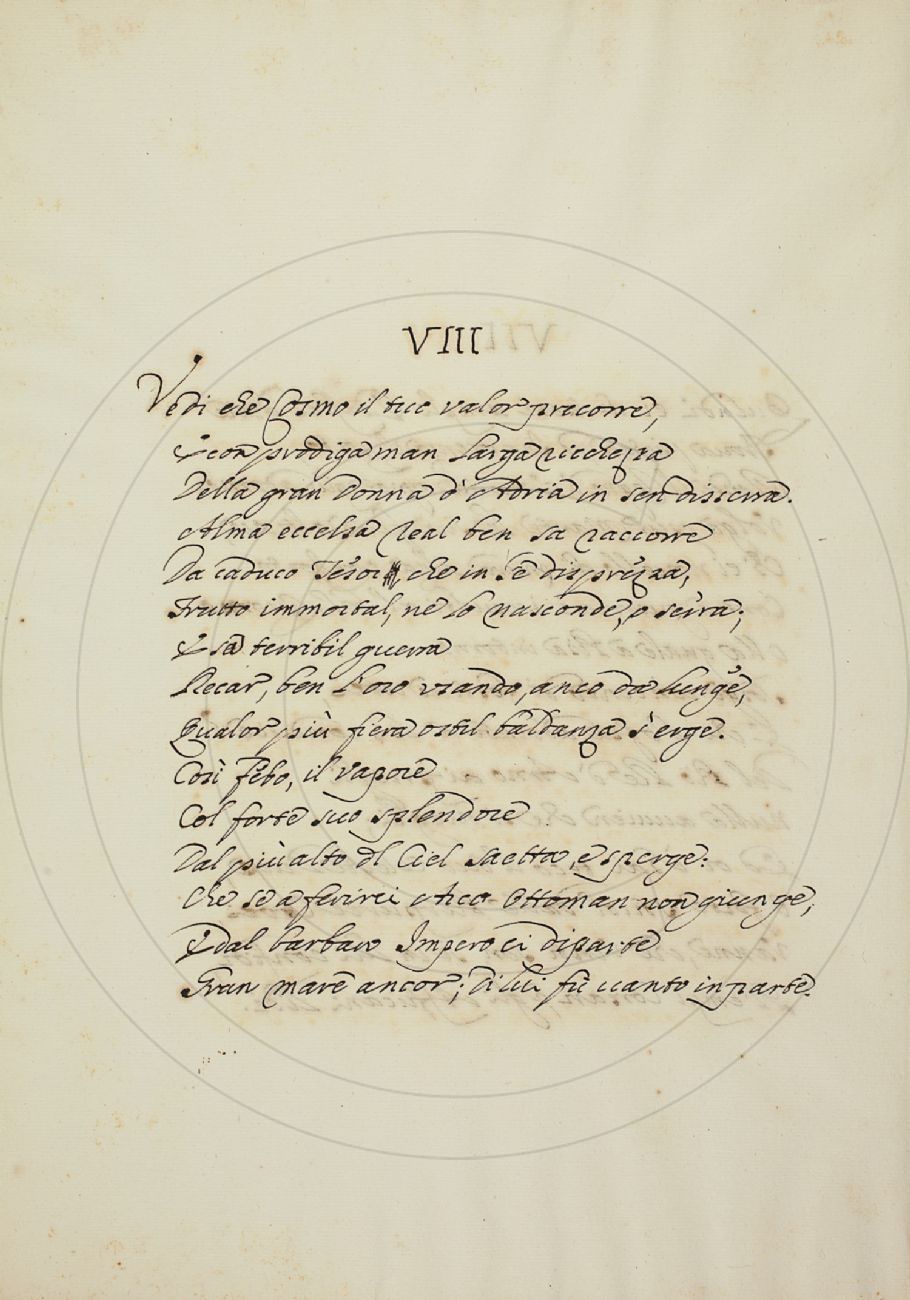 VIII
Vedi che Cosmo il tuo valor precorre,
E con prodiga man larga ricchezza
Della gran Donna d'Adria in sen disserra.
Alma eccelsa Real ben sa raccorre
Da caduco Tesor, che in se disprezza,
Frutto immortal, ne lo nasconde, o serra;
E sa terribil guerra
Recar, ben l'oro usando, anco da lunge,
Qualor più fiera ostil baldanza s'erge.
Così Febo, il vapore
Col forte suo splendore
Dal più alto del Ciel saetta, e sperge:
Che se a ferirci Arco Ottoman non giunge,
E dal barbaro Impero ci diparte
Gran mare ancor; di lui fù vanto in parte.